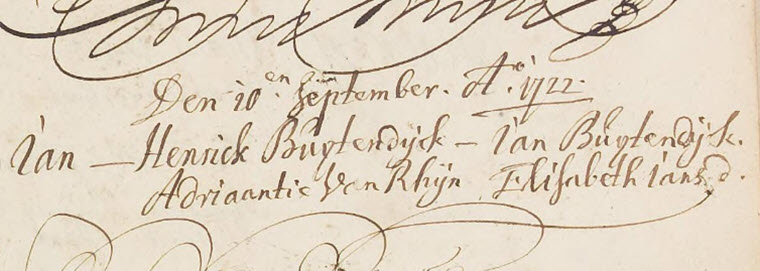 Den 10en September. Ao. 1722.
Jan — Henrick Buytendijck — Jan Buytendijck.
Adriaantie Van Rhijn Elisabeth Jans d.